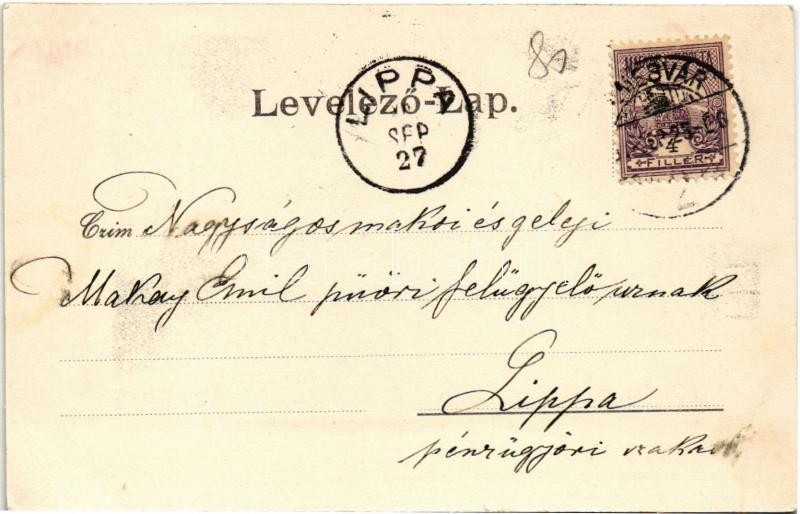 80
LIPPA
SEP
27
ESVÁR
4
FILLÉR
Levelező-Lap.
Czim Nagyságos makói és geleji
Makay Emil püőri felügyelő urnak
Lippa
pénzügyőri szakasz